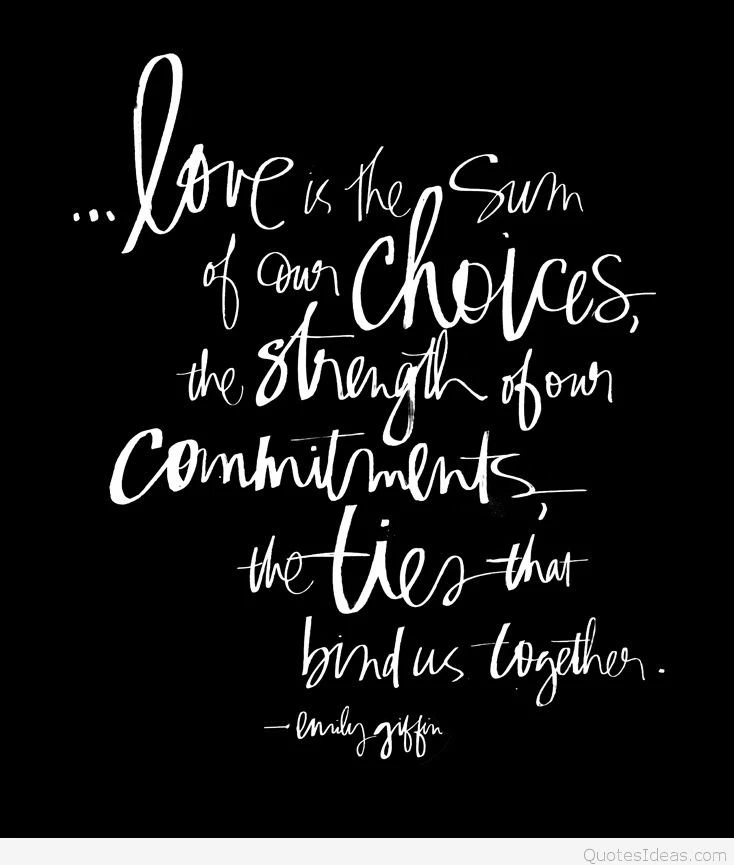 ...love is the sum
of our choices,
the strength of our
commitments,
the ties that
bind us together.
— emily giffin
QuotesIdeas.com